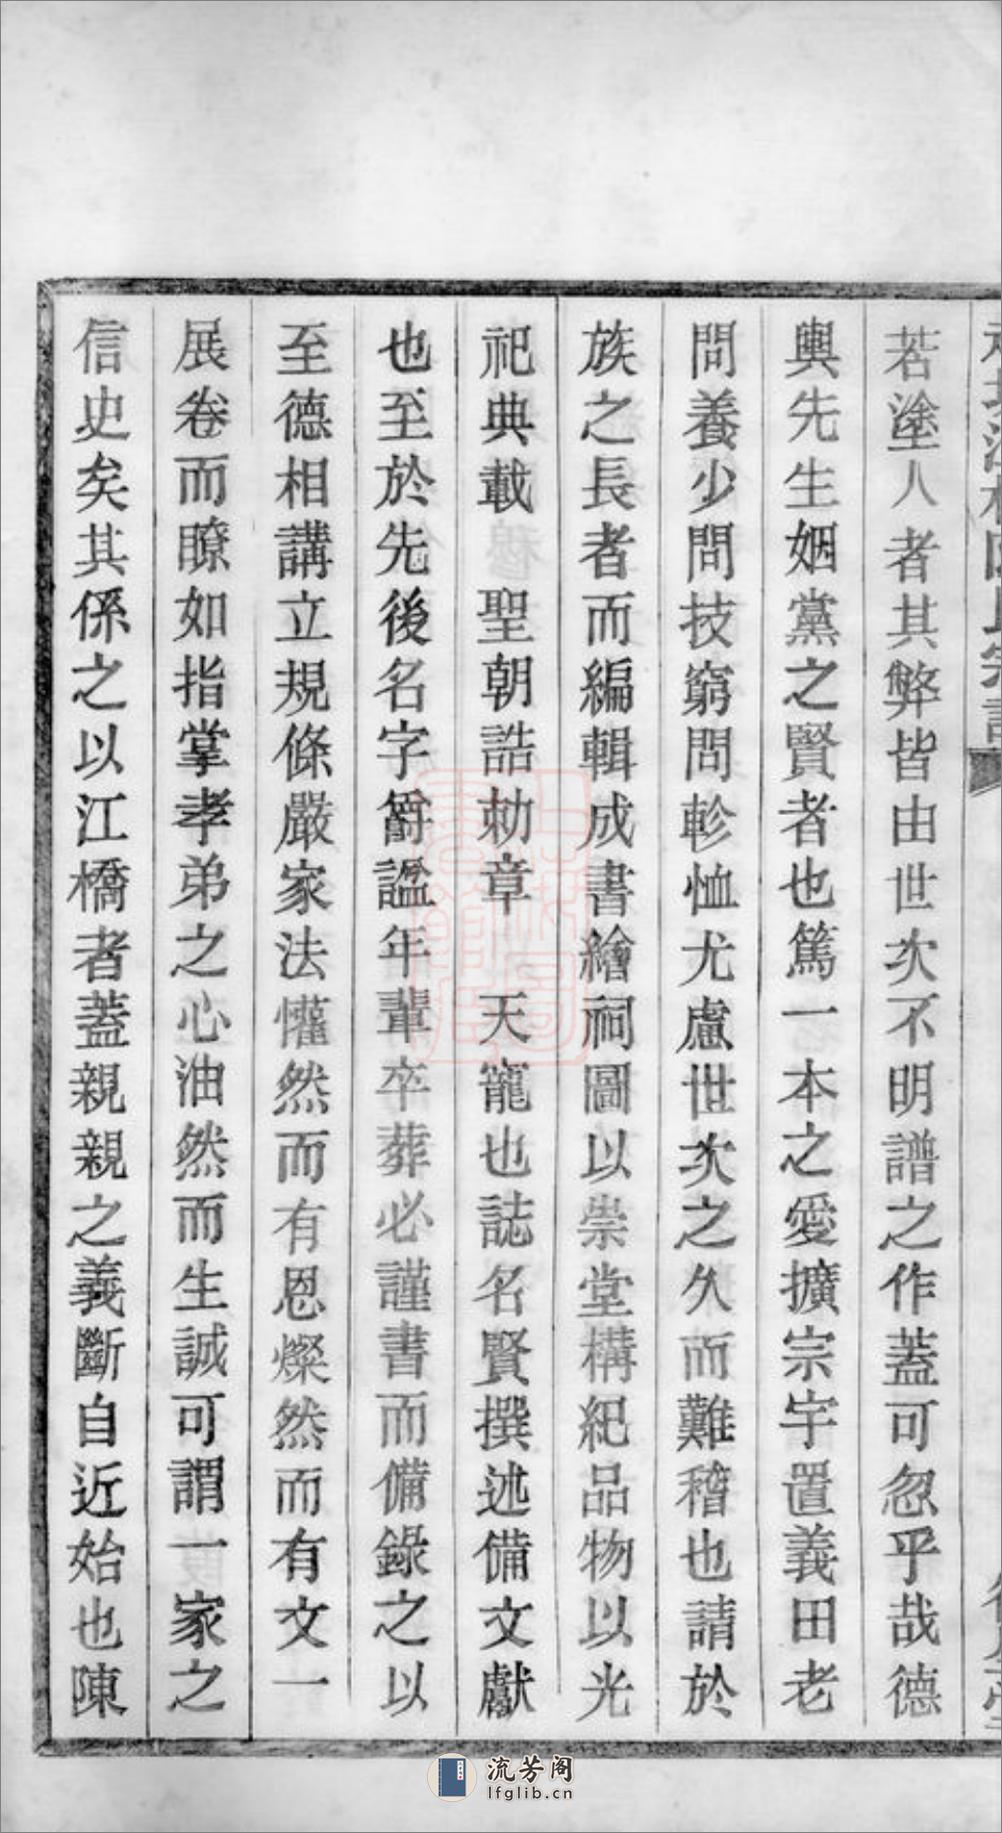 若塗人者其弊皆由世次不明譜之作蓋可忽乎哉德
輿先生姻黨之賢者也篤一本之愛擴宗宇置義田老
問養少問技窮問軫恤尤慮世次之久而難稽也請於
族之長者而編輯成書繪祠圖以崇堂構紀品物以光
祀典載 聖朝誥勅章 天寵也誌名賢撰述備文獻
也至於先後名字爵諡年輩卒葬必謹書而備錄之以
至德相講立規條嚴家法懽然而有恩燦然而有文一
展卷而瞭如指掌孝弟之心油然而生誠可謂一家之
信史矣其係之以江橋者蓋親親之義斷自近始也陳
流芳阁
lfglib.cn